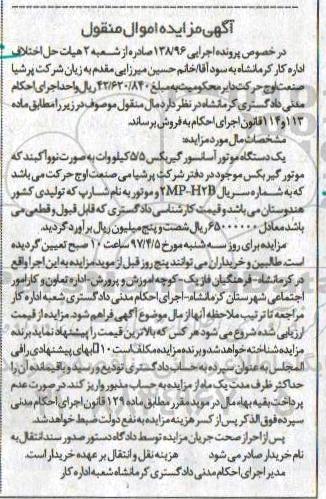 آگهی مزایده اموال منقول
در خصوص پرونده اجرایی ۱۳۸/۹۶ صادره از شعبه ۲ هیات حل اختلاف
اداره کار کرمانشاه به سود آقا/خانم حسین میرزایی مقدم به زیان شرکت پرشیا
صنعت اوج حرکت دایر محکومیت به مبلغ ۴۲/۶۲۰/۸۴۰ ریال واحد اجرای احکام
مدنی دادگستری کرمانشاه در نظر دارد مال منقول موصوف در زیر را مطابق ماده
۱۱۳ و ۱۱۴ قانون اجرای احکام به فروش برساند.
مشخصات مال مورد مزایده:
یک دستگاه موتور آسانسور گیربکس ۵/۵ کیلو وات به صورت نو و آکبند که
موتور گیربکس موجود در دفتر شرکت پرشیا می صنعت اوج حرکت می باشد
که به شماره سریال 2MP-H2B و موتور به نام شارپ که تولیدی کشور
هندوستان می باشد و قیمت کارشناسی دادگستری که قابل قبول و قطعی می
باشد معادل ۶۵۰۰۰۰۰۰ ریال شصت و پنج میلیون ریال برآورد گردید.
مزایده برای روز سه شنبه مورخ ۹۷/۴/۵ ساعت ۱۰ صبح تعیین گردیده
است. طالبین و خریداران می توانند پنج روز قبل از موعد مزایده به این اجرا واقع
در کرمانشاه- فرهنگیان فاز یک- کوچه آموزش و پرورش- اداره تعاون و کار امور
اجتماعی شهرستان کرمانشاه- اجرای احکام مدنی دادگستری شعبه اداره کار
مراجعه تا ترتیب ملاحظه آنها از مال موضوع آگهی فراهم شود. مزایده از قیمت
ارزیابی شده شروع می شود هر کس که بالاترین قیمت را پیشنهاد نماید برنده
مزایده شناخته خواهد شد و برنده مزایده مکلف است ۱۰ بهای پیشنهادی را فی
المجلس به عنوان سپرده به حساب دادگستری تودیع و رسید و باقیمانده آن را
حداکثر ظرف مدت یک ماه از مزایده به حساب مذبور واریز کند. در صورت عدم
پرداخت بقیه بهاء مال در موعد مقرر مطابق ماده ۱۲۹ قانون اجرای احکام مدنی
سپرده فوق الذکر پس از کسر هزینه مزایده به نفع دولت ضبط خواهد شد.
پس از احراز صحت جریان مزایده توسط دادگاه دستور صدور سند انتقال به
نام خریدار صادر می شود هزینه نقل و انتقال بر عهده خریدار است.
مدیر اجرای احکام مدنی دادگستری کرمانشاه شعبه اداره کار